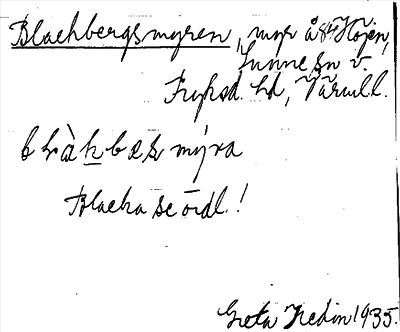 Blackbergsmyren, myr å St Höjen,
Sunne sn v.
Fryksd. hd, Värml.
blàkbæsmýra
Blacka se ordl!
Greta Hedin 1935.